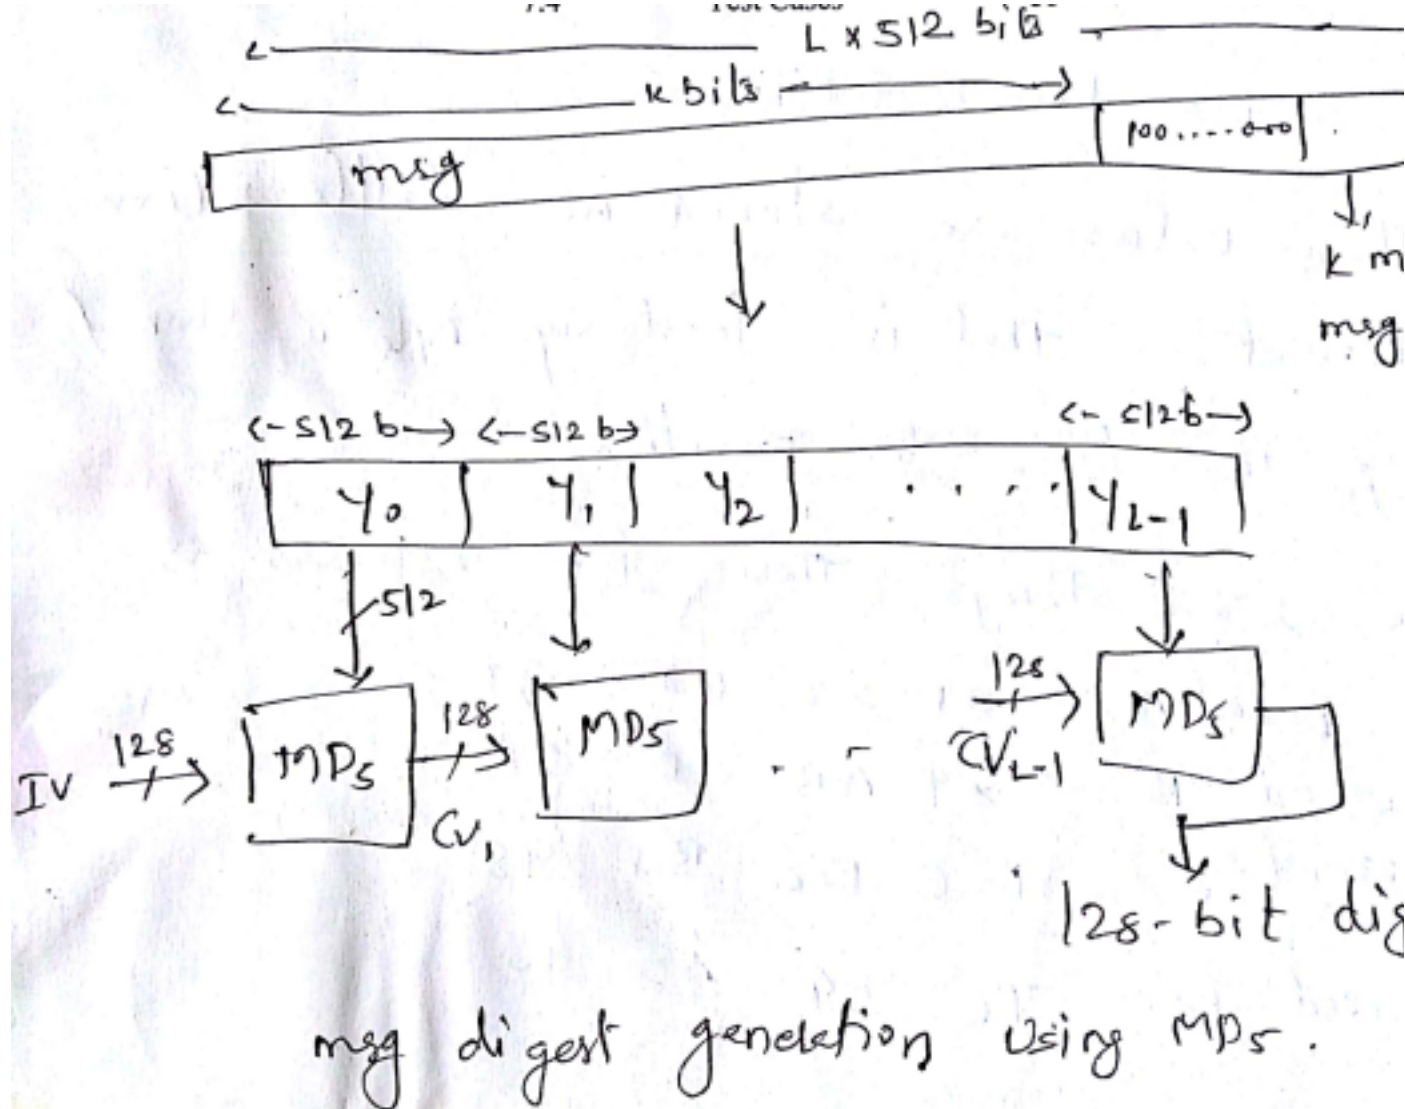 7.4 Test Cases
L x 512 bits
k bits
msg 100....000
k m
msg
<-512 b-> <-512 b-> <-512b->
Y0 Y1 Y2 .... YL-1
512
IV 128 MD5 128 CV1 MD5 . - 128 CVL-1 MD5
128-bit dig
msg digest generation using MD5.